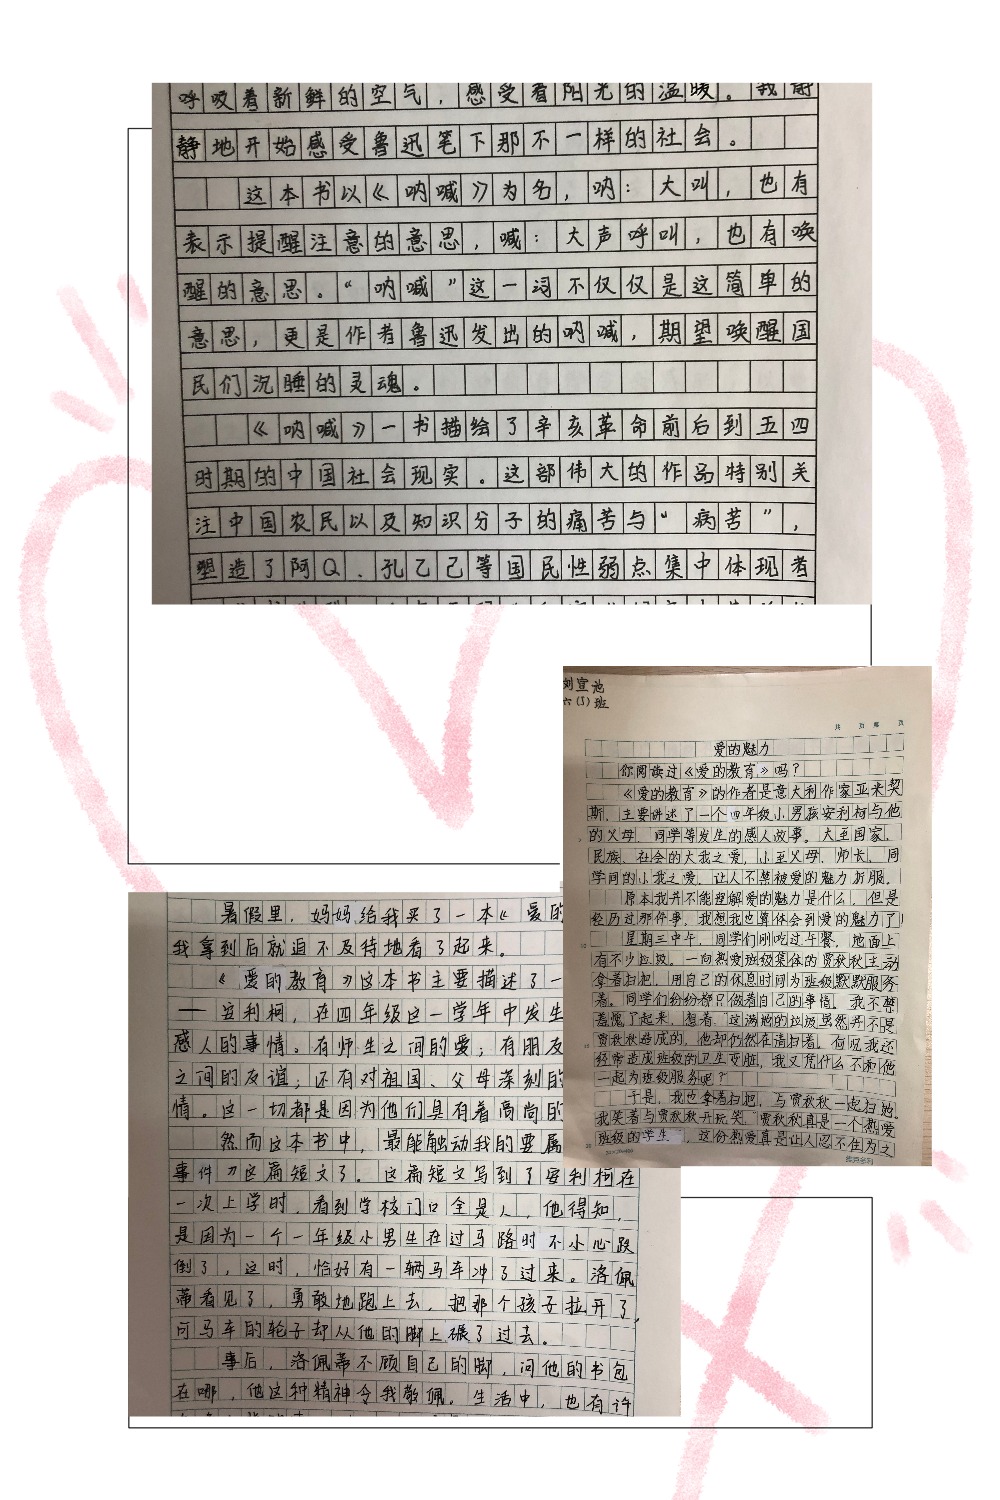 呼吸着新鲜的空气，感受着阳光的温暖。我静
静地开始感受鲁迅笔下那不一样的社会。
这本书以《呐喊》为名，呐：大叫，也有
表示提醒注意的意思，喊：大声呼叫，也有唤
醒的意思。“呐喊”这一词不仅仅是这简单的
意思，更是作者鲁迅发出的呐喊，期望唤醒国
民们沉睡的灵魂。
《呐喊》一书描绘了辛亥革命前后到五四
时期的中国社会现实。这部伟大的作品特别关
注中国农民以及知识分子的痛苦与“病苦”，
塑造了阿Q、孔乙己等国民性弱点集中体现者
刘宣池
六(5)班
共 页 第 页
爱的魅力
你阅读过《爱的教育》吗？
《爱的教育》的作者是意大利作家亚米契
斯，主要讲述了一个四年级小男孩安利柯与他
的父母、同学等发生的感人故事。大至国家、
民族、社会的大我之爱，小至父母、师长、同
学间的小我之爱，让人不禁被爱的魅力折服。
原本我并不能理解爱的魅力是什么，但是
经历过那件事，我想我也算体会到爱的魅力了！
星期三中午，同学们刚吃过午餐，地面上
有不少垃圾。一向热爱班级集体的贾秋秋主动
拿着扫把，用自己的休息时间为班级默默服务
着。同学们纷纷都只做着自己的事情。我不禁
羞愧了起来，想着，这满地的垃圾虽然并不是
贾秋秋造成的，他却仍然在清扫着。何况我还
经常造成班级的卫生变脏，我又凭什么不和他
一起为班级服务呢？
于是，我也拿着扫把，与贾秋秋一起扫地。
我笑着与贾秋秋开玩笑，贾秋秋真是一个热爱
班级的学生，这份热爱真是让人忍不住为之
暑假里，妈妈给我买了一本《爱的
我拿到后就迫不及待地看了起来。
《爱的教育》这本书主要描述了一
——安利柯，在四年级这一学年中发生
感人的事情。有师生之间的爱；有朋友
之间的友谊；还有对祖国、父母深刻的
情。这一切都是因为他们具有着高尚的
然而这本书中，最能触动我的要属
事件》这篇短文了。这篇短文写到了安利柯在
一次上学时，看到学校门口全是人，他得知，
是因为一个一年级小男生在过马路时不小心跌
倒了，这时，恰好有一辆马车冲了过来。洛佩
蒂看见了，勇敢地跑上去，把那个孩子拉开了，
可马车的轮子却从他的脚上碾了过去。
事后，洛佩蒂不顾自己的脚，问他的书包
在哪，他这种精神令我敬佩。生活中，也有许